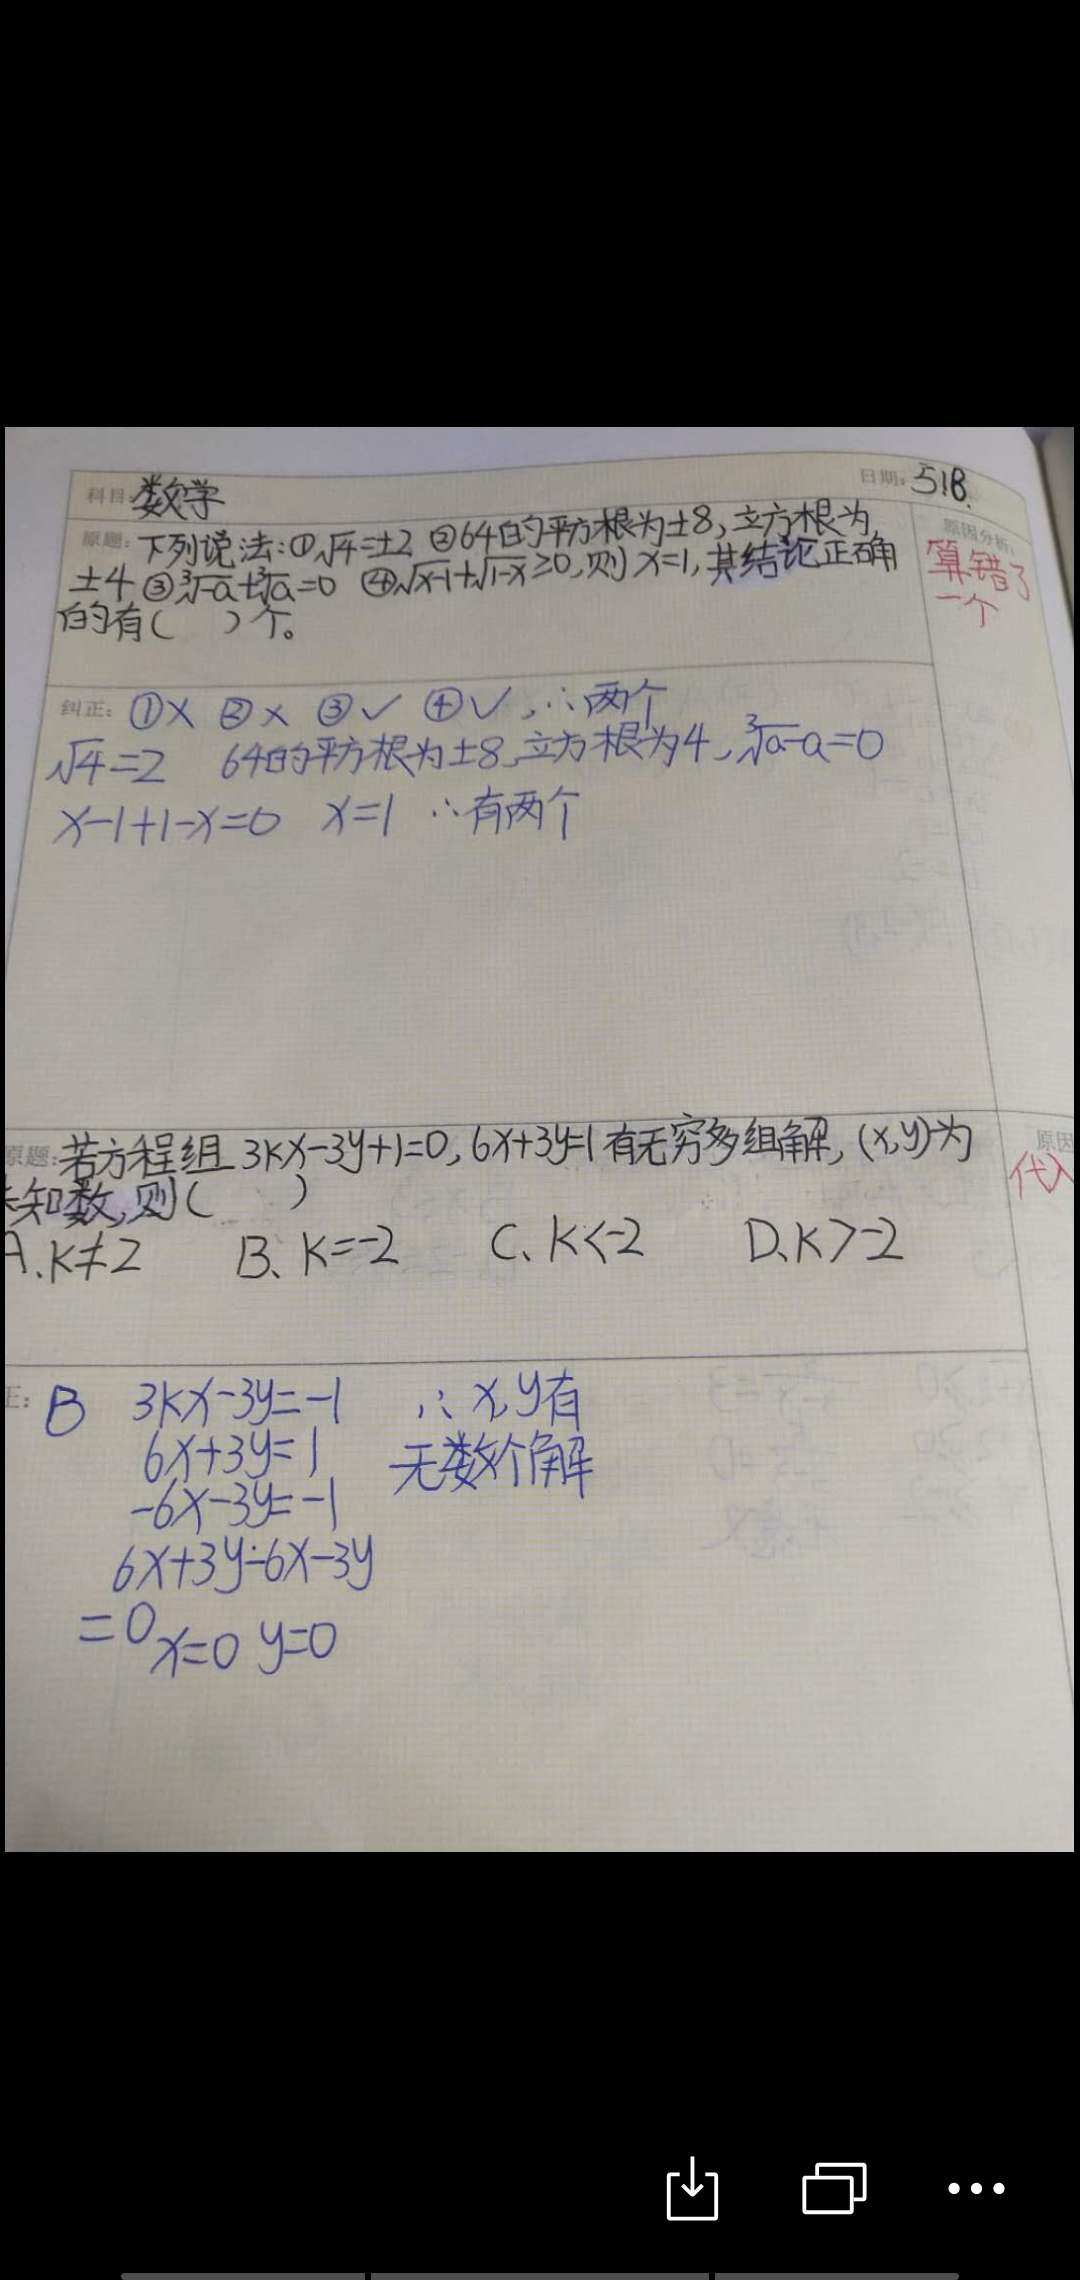 科目: 数学
日期: 518.
原题: 下列说法:①√4=±2 ②64的平方根为±8,立方根为
±4 ③∛-a+∛a=0 ④√x-1+√1-x≥0,则x=1,其结论正确
的有( )个。
原因分析:
算错了
一个
纠正: ①× ②× ③✓ ④✓,∴两个
√4=2 64的平方根为±8,立方根为4,∛a-a=0
x-1+1-x=0 x=1 ∴有两个
原题: 若方程组 3kx-3y+1=0,6x+3y=1有无穷多组解,(x,y)为
未知数,则( )
A.k≠2 B、k=-2 C、k<-2 D、k>-2
原因
代入
正: B 3kx-3y=-1 ∴x,y有
6x+3y=1 无数个解
-6x-3y=-1
6x+3y-6x-3y
=0 x=0 y=0